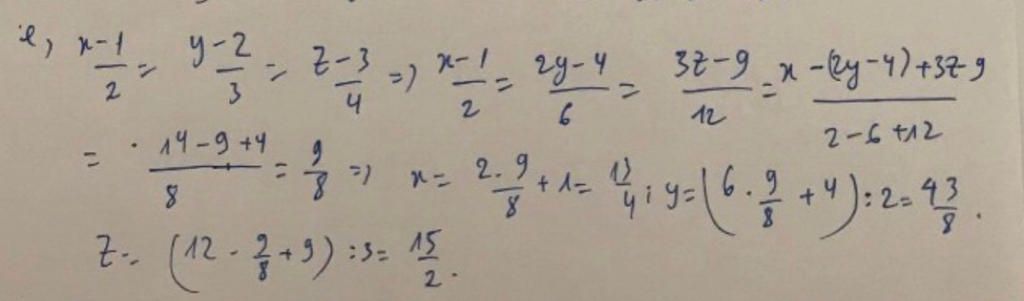 e, x-1/2 = y-2/3 = z-3/4 => x-1/2 = 2y-4/6 = 3z-9/12 = x-(2y-4)+3z-9/2-6+12
= 14-9+4/8 = 9/8 => x = 2.9/8 + 1 = 13/4; y = (6.9/8 + 4):2 = 43/8.
z = (12.9/8+9):3 = 15/2.